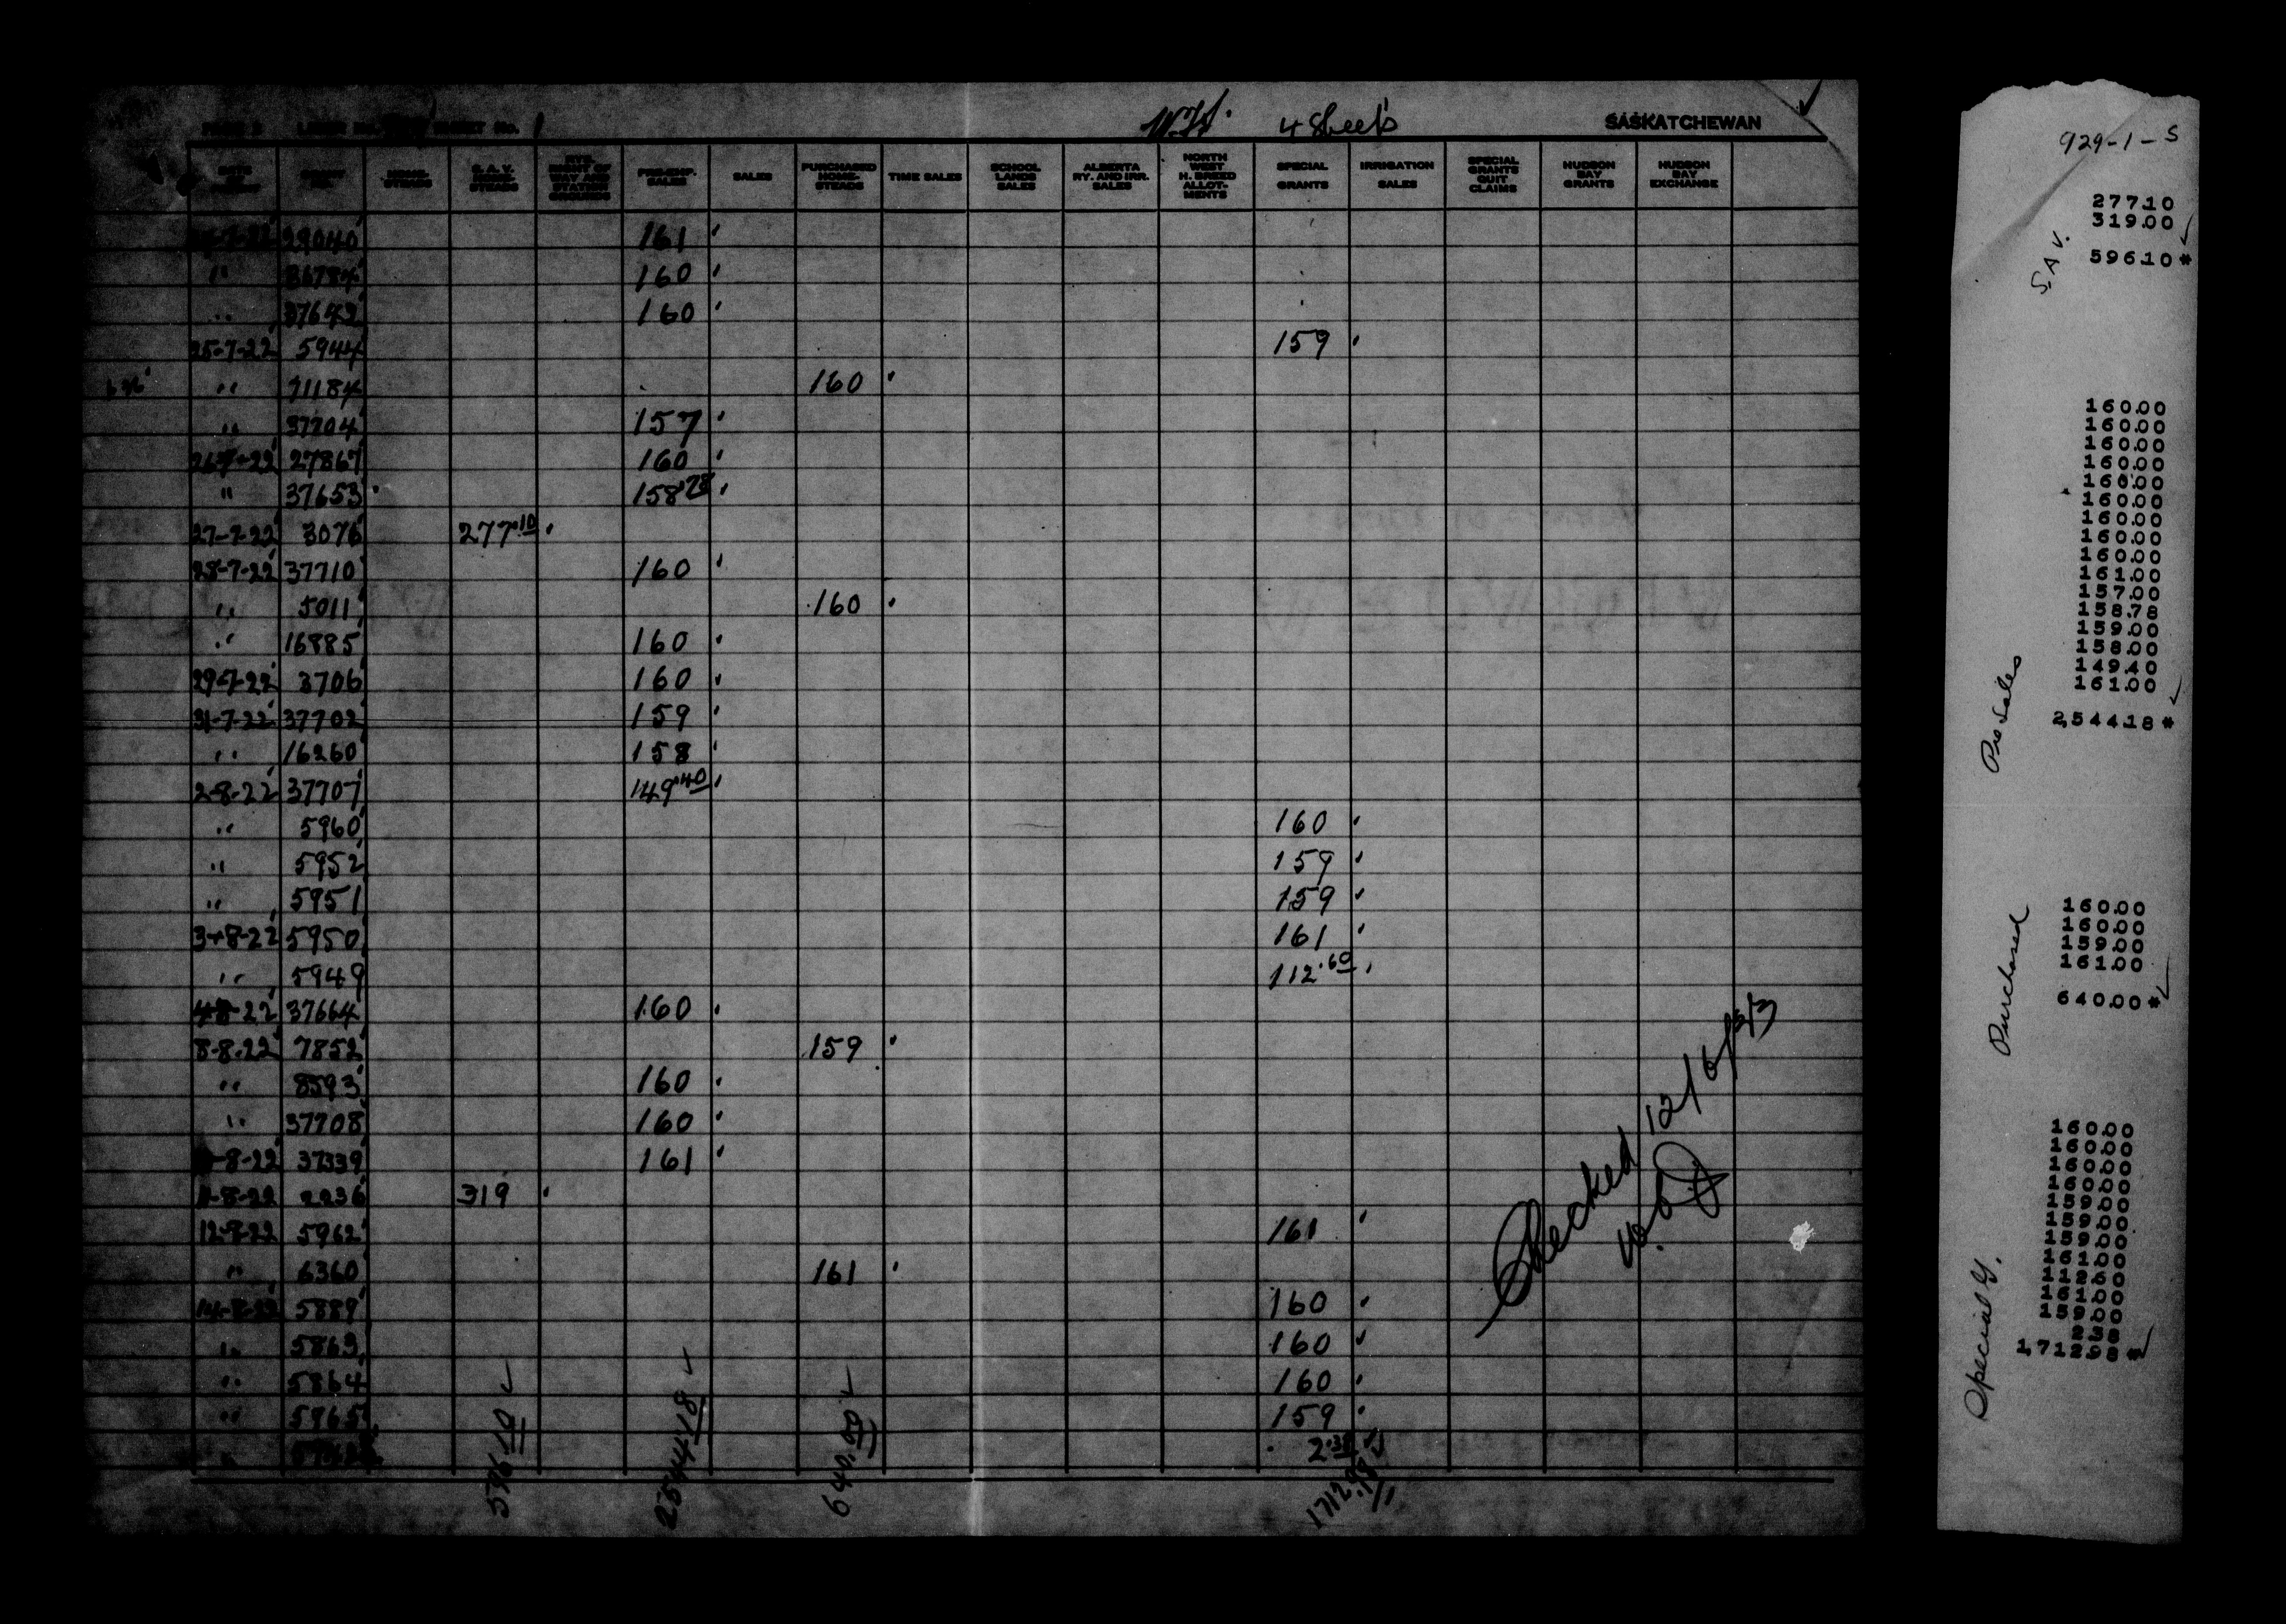 W.H. 4 Sheets SASKATCHEWAN
HOME-STEADS S. A. V. HOME-STEADS PRE-EMP. SALES SALES PURCHASED HOME-STEADS TIME SALES SCHOOL LANDS SALES ALBERTA RY. AND IRR. SALES NORTH WEST H. BREED ALLOT-MENTS SPECIAL GRANTS IRRIGATION SALES SPECIAL GRANTS QUIT CLAIMS HUDSON BAY GRANTS HUDSON BAY EXCHANGE
161
" 36784 160
" 160
25-7-22 5944 159
" 71184 160
" 37704 157
27867 160
" 37653 158.78
27-7-22 3076 277.10
28-7-22 37710 160
" 5011 160
" 16885 160
29-7-22 3706 160
31-7-22 37702 159
" 16260 158
2-8-22 37707 149.40
" 5960 160
" 5952 159
" 5951 159
3-8-22 5950 161
" 5949 112.60
4-8-22 37664 160
8-8-22 7852 159
" 8593 160
" 37708 160
-8-22 37339 161
2236 319
5962 161
" 6360 161
5889 160
" 5863 160
" 5864 160
" 5965 159
" 2.38
596.10 2544.18 640.00 1712.98
Checked 12/6/33
929-1-S
277.10
319.00
596.10 *
S.A.V.
160.00
160.00
160.00
160.00
160.00
160.00
160.00
160.00
160.00
161.00
157.00
158.78
159.00
158.00
149.40
161.00
2,544.18 *
Pre Sales
160.00
160.00
159.00
161.00
640.00 *
Purchased
160.00
160.00
160.00
160.00
159.00
159.00
159.00
161.00
112.60
161.00
159.00
2.38
1,712.98 *
Special G.